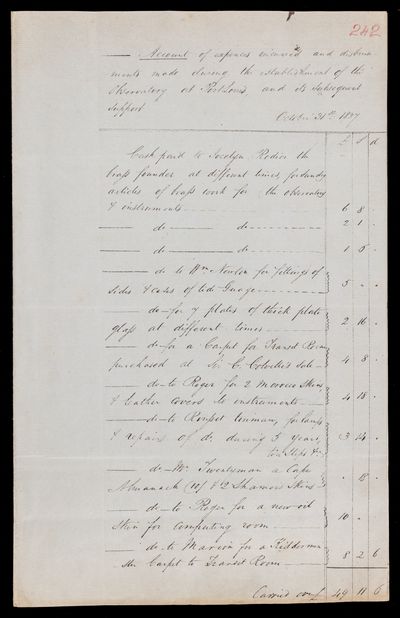 242
Account of expences incurred and disburse-
ments made during the establishment of the
Observatory at Port Louis and its subsequent
support
October 31st 1837
£ s d
Cash paid to Jocelyn Rodier the
brass founder at different times, for sundry
articles of brass work for the observatory
& instruments 6 8 -
do do 2 1 -
do do 1 5 -
do to Wm Newton for fittings of
sides & cases of tide Guage 5 - -
do for 7 plates of thick plate
glass at different times 2 16 -
do for a Carpet for Transit Room
purchased at Sir C. Colville's sale 4 8 -
do to Roger for 2 Morocco Skins
& Leather covers to instruments 4 18 -
do to tinman, for lamps
& repairs of do during 5 years,
3 14 -
do Mr Twentyman a Cape
Almanack (10/) & 2 Shamois Skins - 18 -
do to Roger for a new oil
skin for Computing room 10 -
do to Marion for a Kiddermin-
ster Carpet to Transit Room 8 2 6
Carried over £ 49 11 6